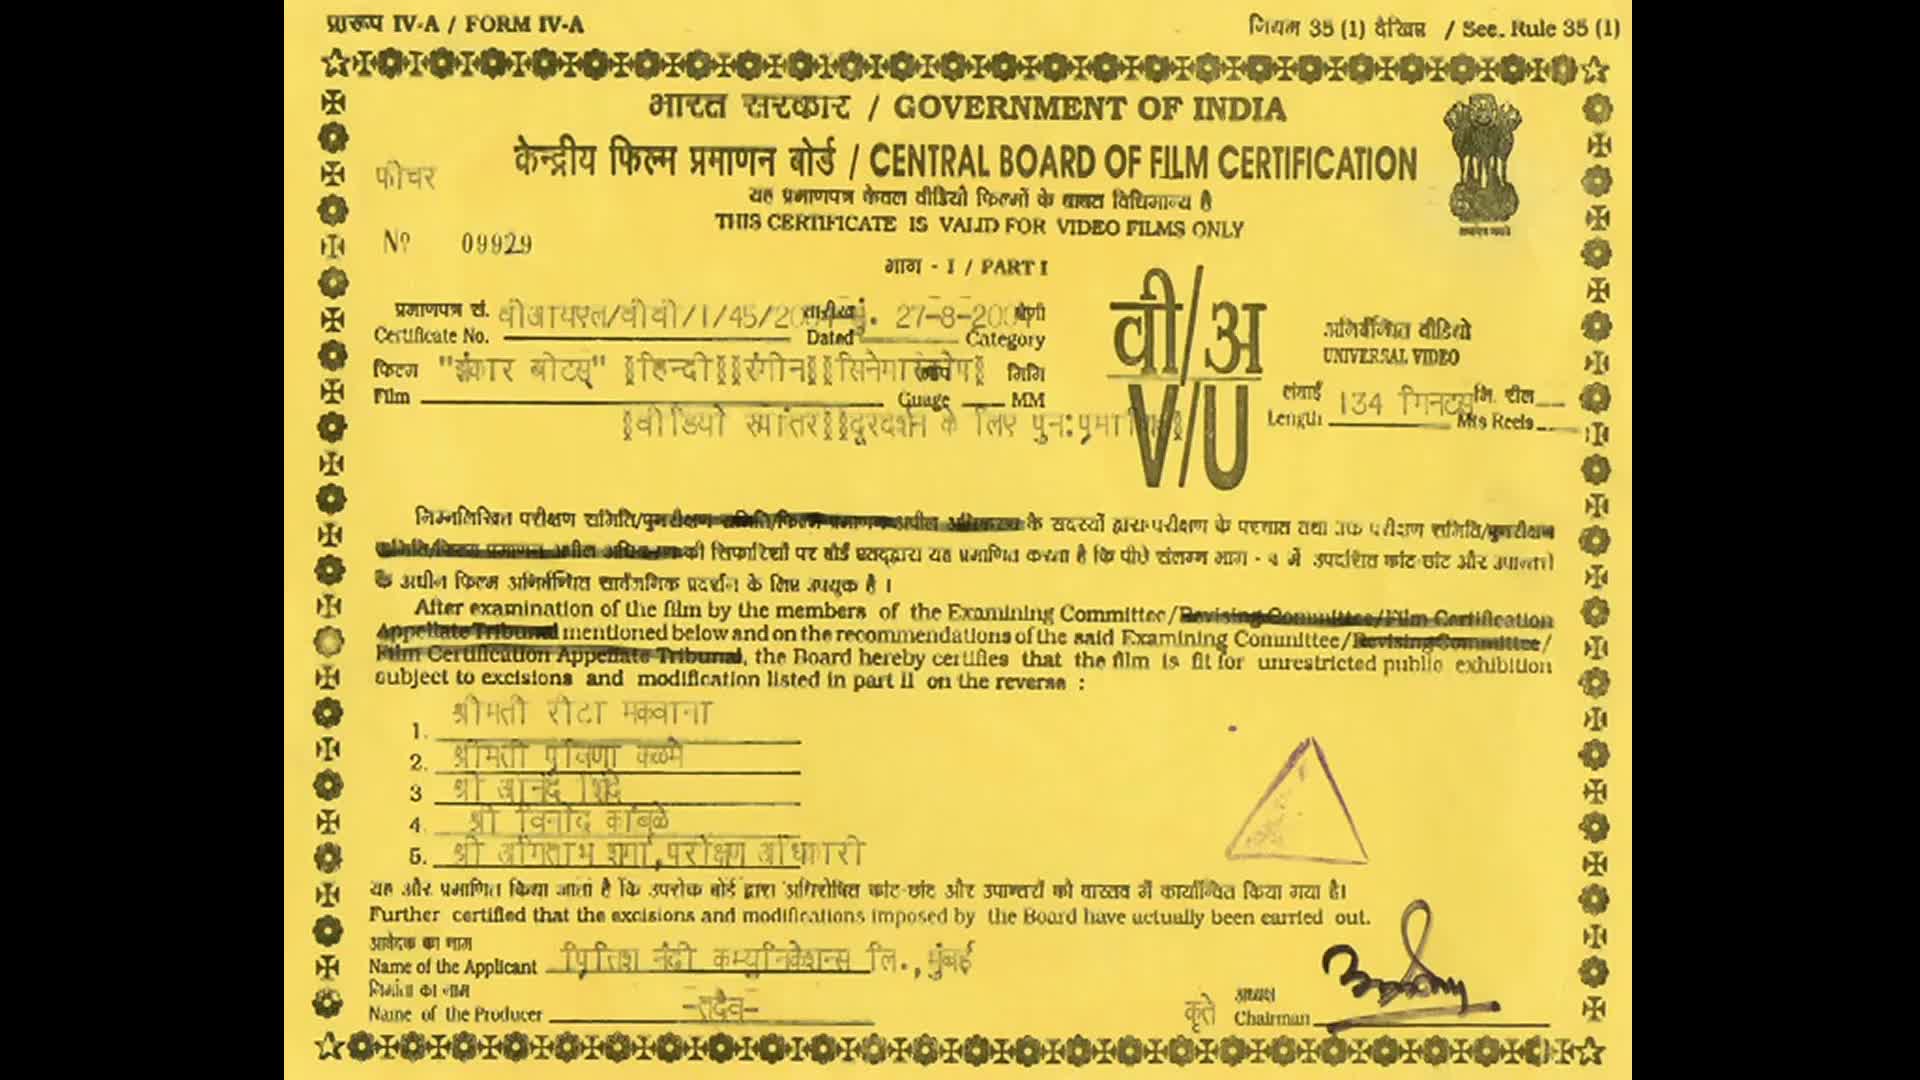 प्रारूप IV-A / FORM IV-A
नियम 35 (1) देखिए / See. Rule 35 (1)
भारत सरकार / GOVERNMENT OF INDIA
केन्द्रीय फिल्म प्रमाणन बोर्ड / CENTRAL BOARD OF FILM CERTIFICATION
फीचर
यह प्रमाणपत्र केवल वीडियो फिल्मों के बाबत विधिमान्य है
THIS CERTIFICATE IS VALID FOR VIDEO FILMS ONLY
Nº 09929
भाग - I / PART I
प्रमाणपत्र सं. वीआयएल/वीवी/1/45/2004 तारीख मुं. 27-8-2004 श्रेणी
Certificate No. Dated Category
वी/अ
V/U
अनिर्बन्धित वीडियो
UNIVERSAL VIDEO
फिल्म "झंकार बीटस्" हिन्दी रंगीन सिनेमास्कोप मिमि
Film Guage MM
लंबाई 134 मिनटस् मि. रील
Length Mts Reels
वीडियो रूपांतर दूरदर्शन के लिए पुनःप्रमाणित
निम्नलिखित परीक्षण समिति/पुनरीक्षण समिति/फिल्म प्रमाणन अपील अधिकरण के सदस्यों द्वारा परीक्षण के पश्चात तथा उक्त परीक्षण समिति/पुनरीक्षण
समिति/फिल्म प्रमाणन अपील अधिकरण की सिफारिशों पर बोर्ड एतद्द्वारा यह प्रमाणित करता है कि पीछे संलग्न भाग - २ में उपदर्शित कांट-छांट और उपान्तरों
के अधीन फिल्म अनिर्बन्धित सार्वजनिक प्रदर्शन के लिए उपयुक्त है ।
After examination of the film by the members of the Examining Committee/Revising Committee/Film Certification
Appellate Tribunal mentioned below and on the recommendations of the said Examining Committee/Revising Committee/
Film Certification Appellate Tribunal, the Board hereby certifies that the film is fit for unrestricted public exhibition
subject to excisions and modification listed in part II on the reverse :
1. श्रीमती रीटा मकवाना
2. श्रीमती प्रविणा कळमे
3 श्री आनंद शिंदे
4. श्री विनोद कांबळे
5. श्री अमिताभ शर्मा, परीक्षण अधिकारी
यह और प्रमाणित किया जाता है कि उपरोक्त बोर्ड द्वारा अधिरोपित कांट-छांट और उपान्तरों को वास्तव में कार्यान्वित किया गया है।
Further certified that the excisions and modifications imposed by the Board have actually been carried out.
आवेदक का नाम
Name of the Applicant प्रितिश नंदी कम्युनिकेशन्स लि., मुंबई
निर्माता का नाम
Name of the Producer -तदैव-
कृते अध्यक्ष
Chairman